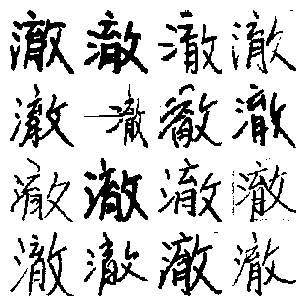 澈澈澈澈
澈澈澈澈
澈澈澈澈
澈澈澈澈